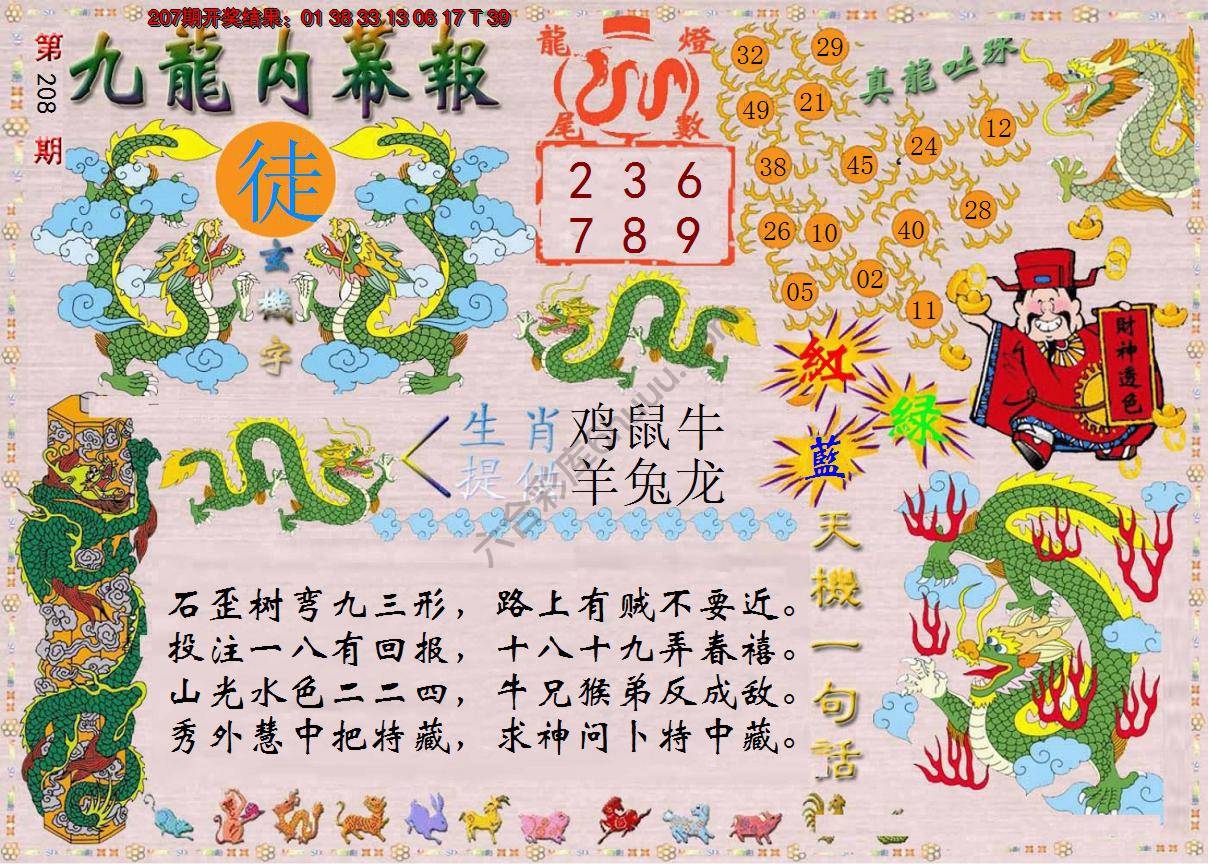 207期开奖结果：01 38 33 13 06 17 T 39
第208期
九龍內幕報
徒
玄機字
龍燈
尾數
2 3 6
7 8 9
真龍吐珠
32 29
49 21
38 45 24 12
26 10 40 28
05 02 11
財神透色
紅
綠
藍
生肖 鸡鼠牛
提供 羊兔龙
天機一句話
石歪树弯九三形，路上有贼不要近。
投注一八有回报，十八十九弄春禧。
山光水色二二四，牛兄猴弟反成敌。
秀外慧中把特藏，求神问卜特中藏。